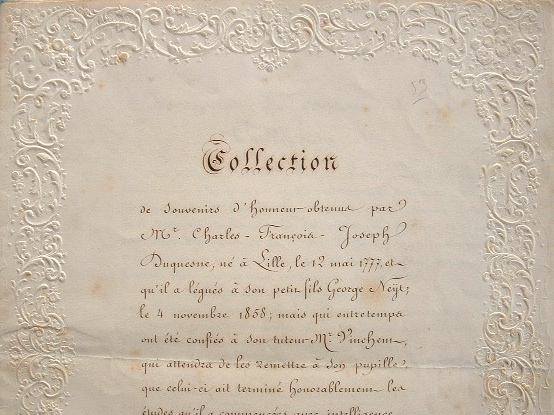 59
Collection
de Souvenirs d'honneur obtenus par
Mr. Charles-François-Joseph
Duquesne, né à Lille, le 12 mai 1777, et
qu'il a légués à son petit fils George Neÿt;
le 4 novembre 1858; mais qui entretemps
ont été confiés à son tuteur Mr. Vinchent,
qui attendra de les remettre à son pupille,
que celui-ci ait terminé honorablement les
études qu'il a commencées avec intelligence